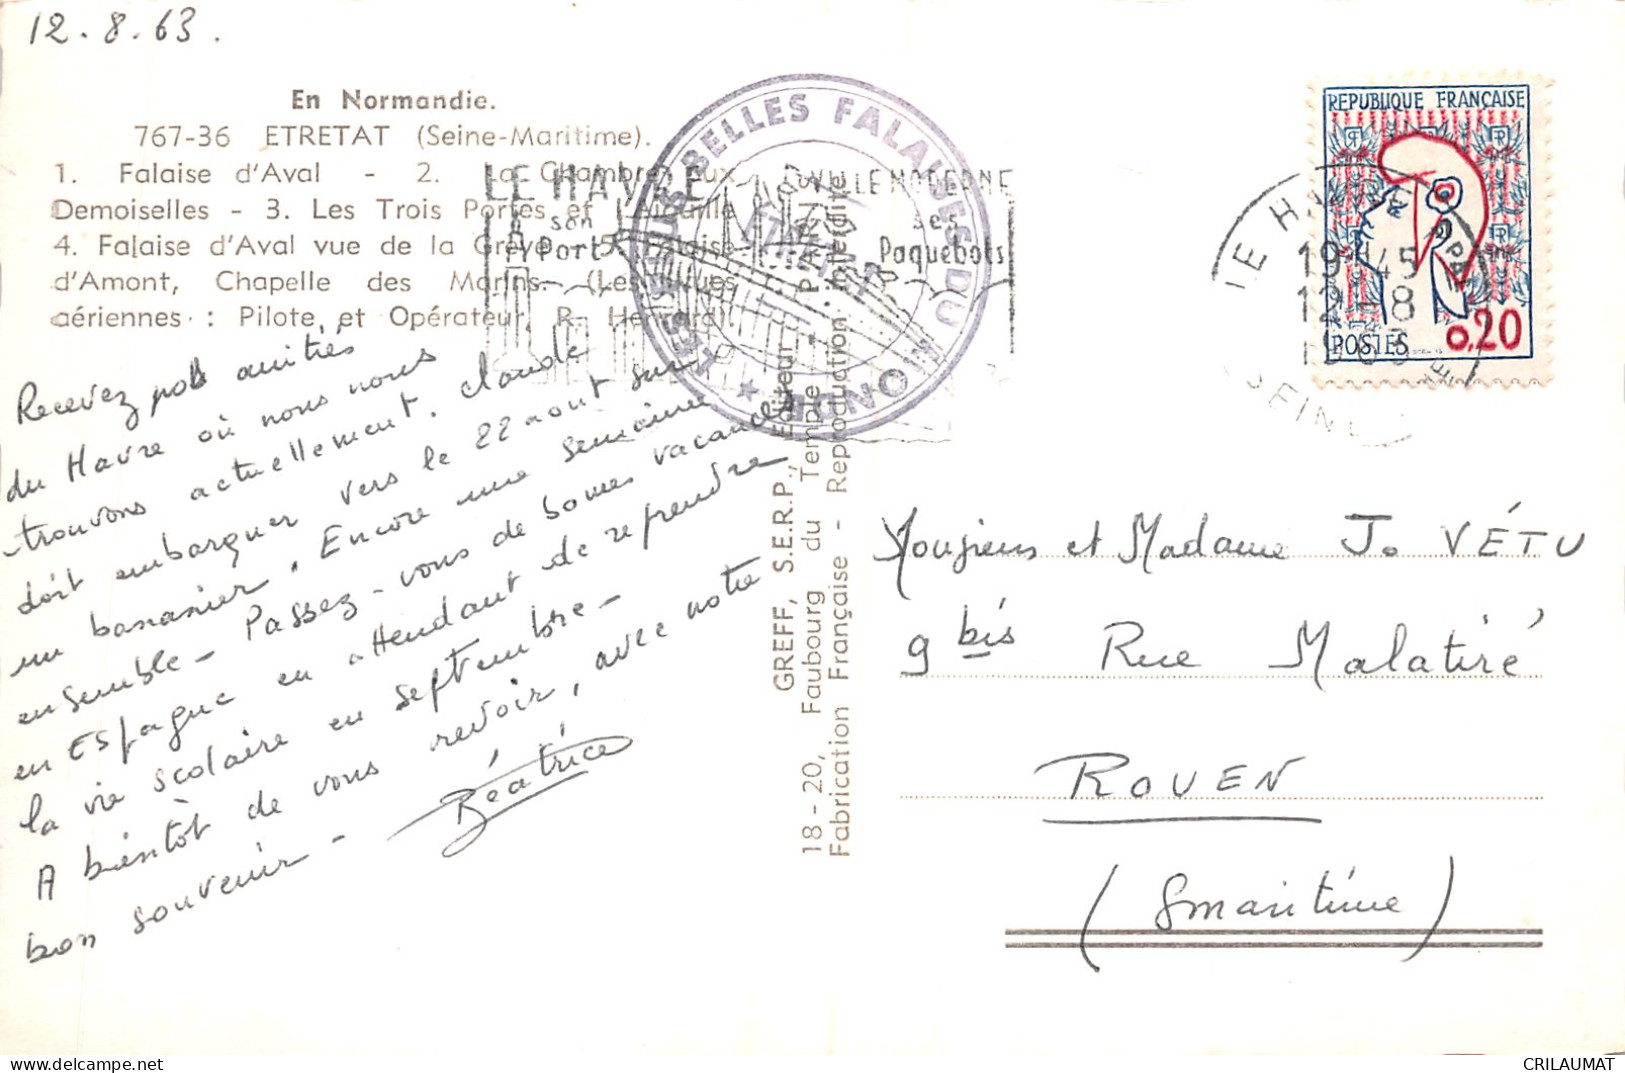 12.8.63.
En Normandie.
767-36 ETRETAT (Seine-Maritime).
1. Falaise d'Aval - 2. La Chambre aux
Demoiselles - 3. Les Trois Portes et l'Aiguille
4. Falaise d'Aval vue de la Grève - 5. Falaise
d'Amont, Chapelle des Marins (Les vues
aériennes : Pilote et Opérateur, R. Henrard).
Recevez nos amitiés
du Havre où nous nous
trouvons actuellement. Claude
doit embarquer vers le 22 août sur
un bananier. Encore une semaine
ensemble - Passez-vous de bonnes vacances
en Espagne en attendant de reprendre
la vie scolaire en septembre -
A bientôt de vous revoir, avec notre
bon souvenir - Béatrice
LE HAVRE
son
Port
VILLE MODERNE
ses
Paquebots
LES PLUS BELLES FALAISES DU MONDE
ETRETAT
GREFF, S.E.R.P., Editeur
18-20, Faubourg du Temple - PARIS
Fabrication Française - Reproduction interdite
REPUBLIQUE FRANÇAISE
POSTES 0,20
LE HAVRE PPAL
19H45
12-8
1963
SEINE
Monsieur et Madame Jo VÉTU
9 bis Rue Malatiré
ROUEN
(Smaritime)
CRILAUMAT